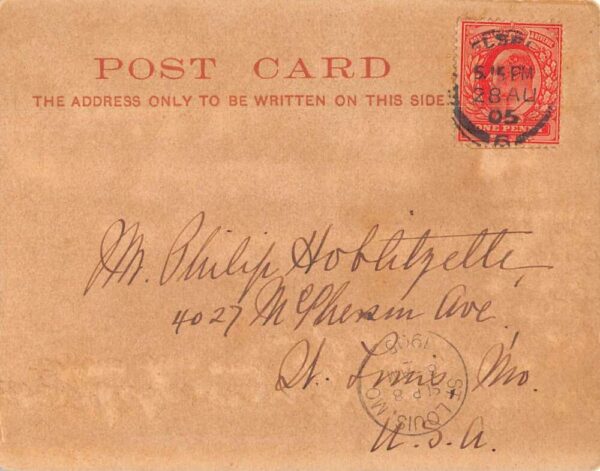 POST CARD
THE ADDRESS ONLY TO BE WRITTEN ON THIS SIDE.
5.15 PM
28 AU
05
ONE PENNY
Mr. Philip Hoblitzelle,
4027 McPherson Ave.
St. Louis, Mo.
U.S.A.
ST. LOUIS, MO.
SEP 8
1905